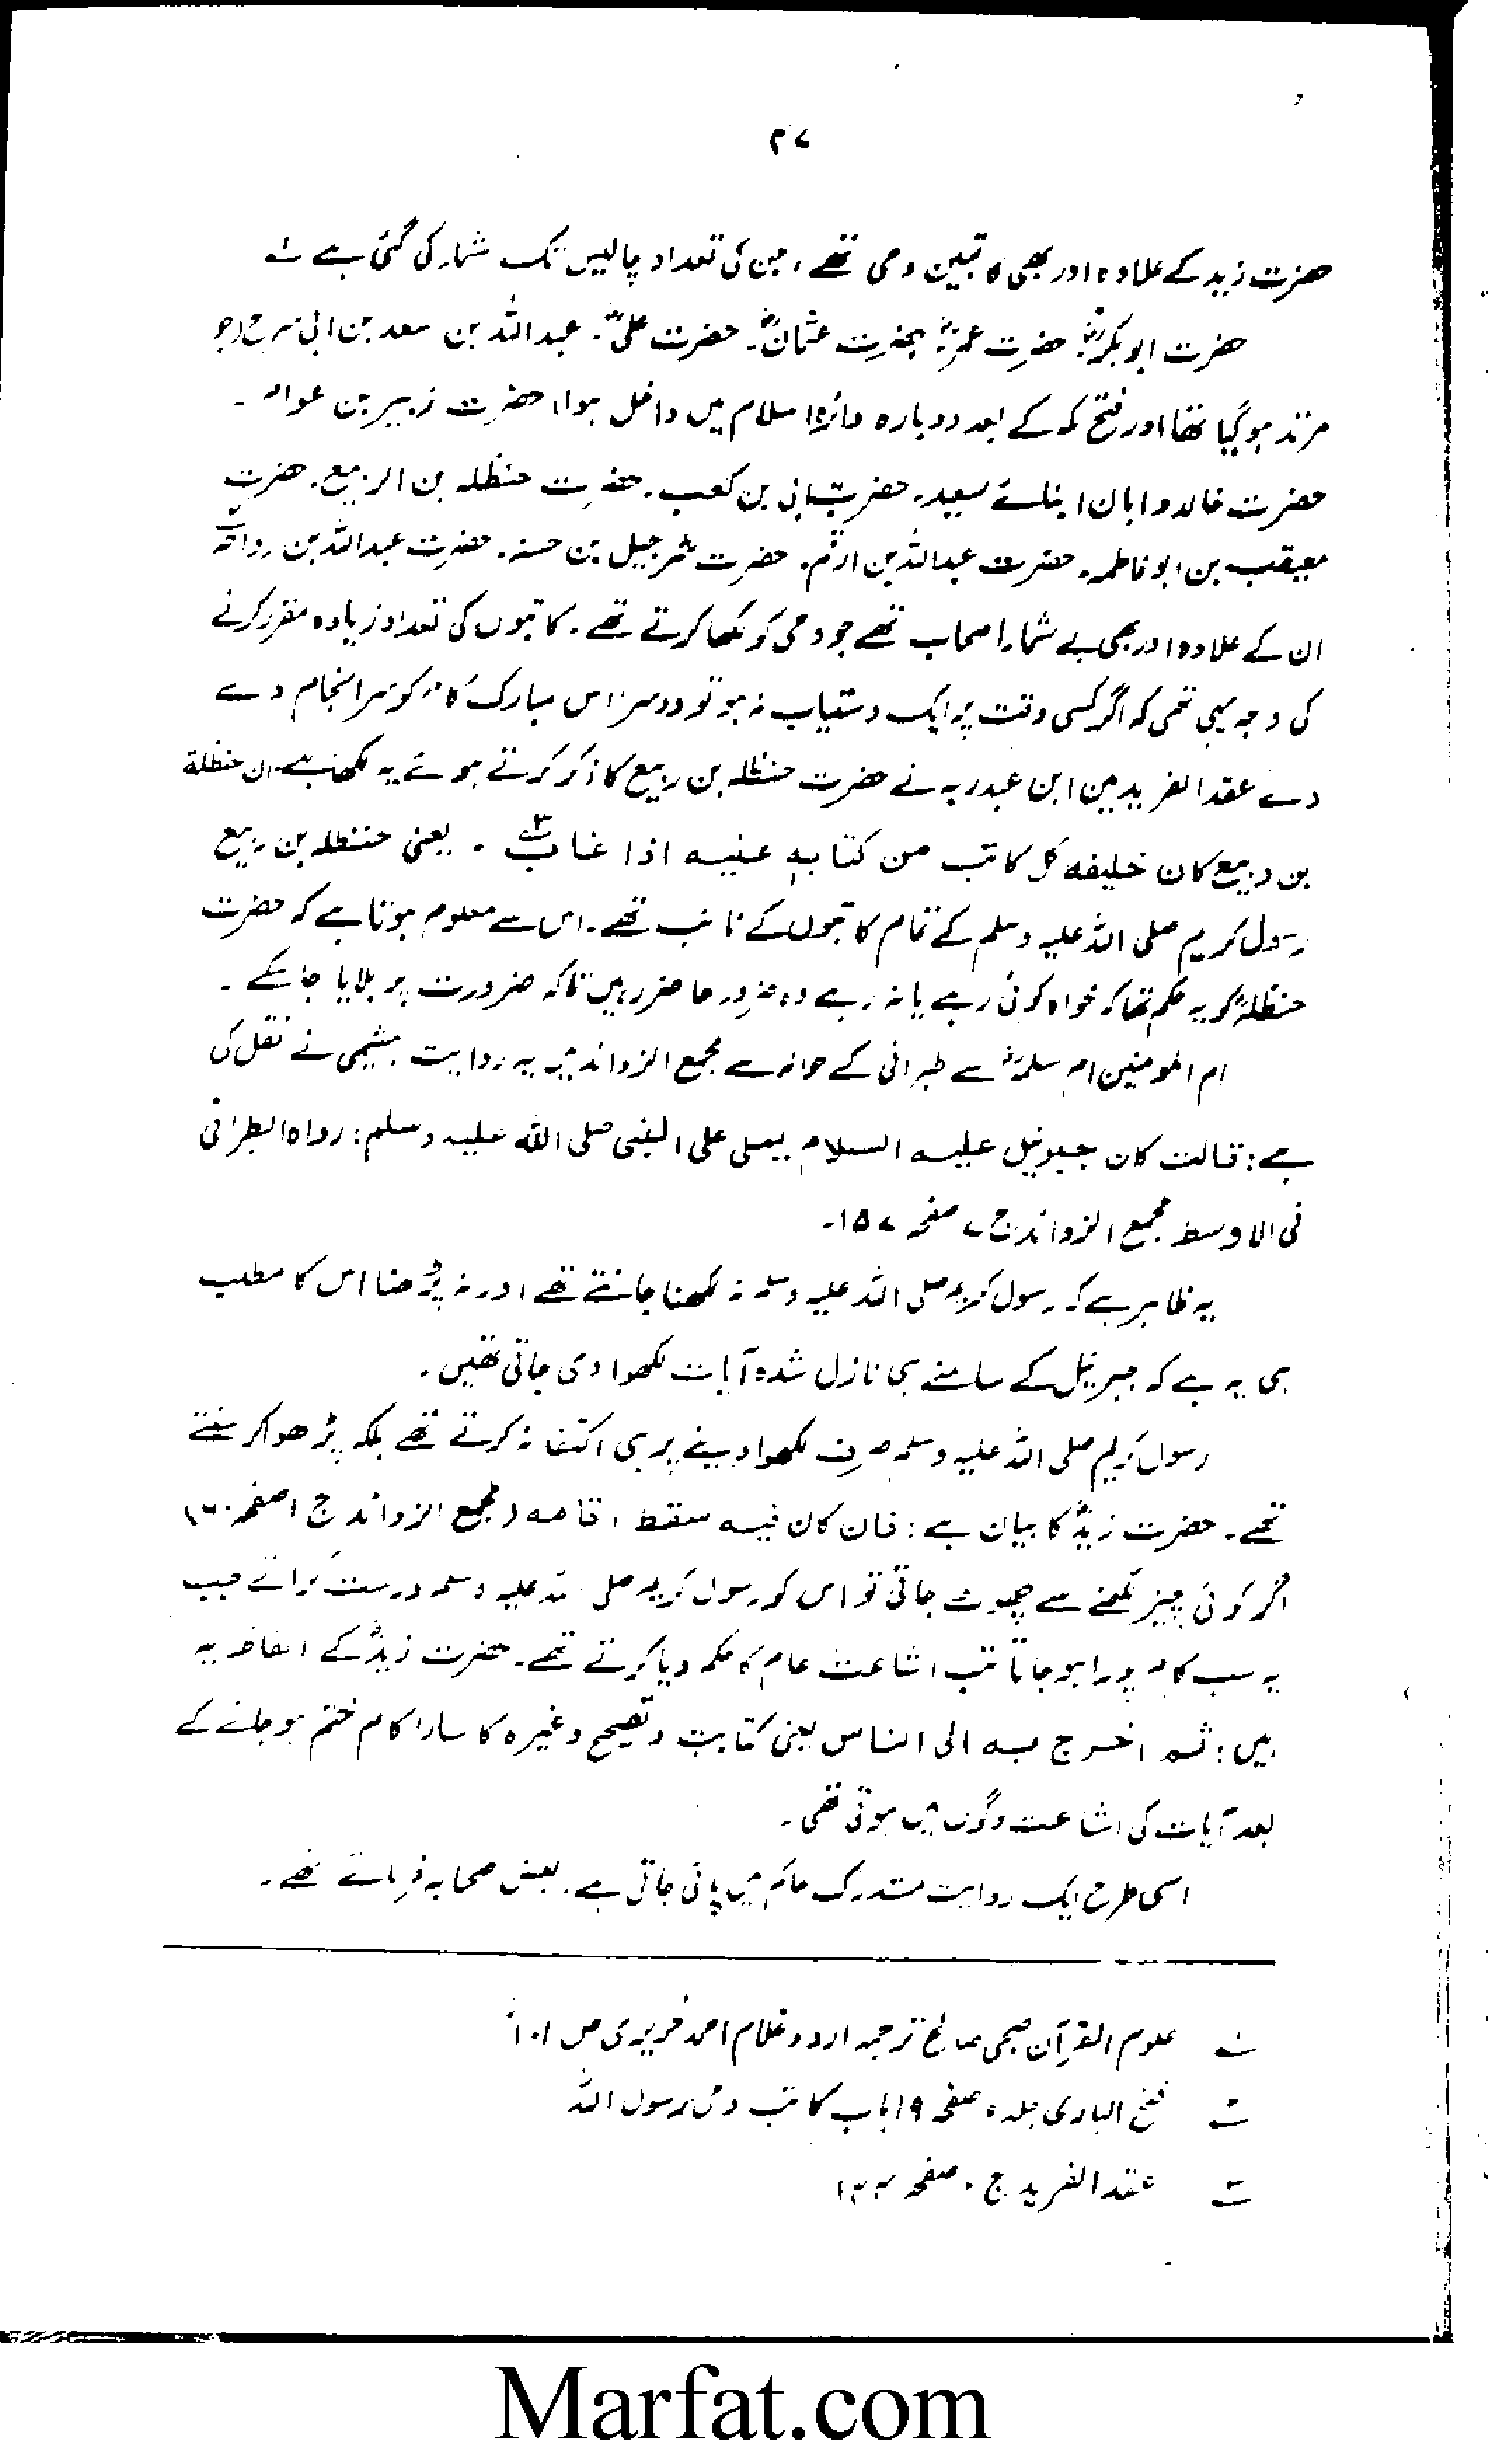 ۴۷
حضرت زید کے علاوہ اور بھی کاتبین وحی تھے، جن کی تعداد چالیس تک شمار کی گئی ہے ۱
حضرت ابوبکرؓ، حضرت عمرؓ، حضرت عثمانؓ۔ حضرت علیؓ۔ عبد اللہ بن سعد بن ابی سرح (جو
مرتد ہو گیا تھا اور فتح مکہ کے بعد دوبارہ دائرہ اسلام میں داخل ہوا) حضرت زبیر بن عوام۔
حضرت خالد و ابان ابنائے سعید۔ حضرت ابی بن کعب۔ حضرت حنظلہ بن الربیع۔ حضرت
معیقب بن ابو فاطمہ۔ حضرت عبد اللہ بن ارقم۔ حضرت شرجیل بن حسنہ۔ حضرت عبد اللہ بن رواحہ ۲
ان کے علاوہ اور بھی بے شمار اصحاب تھے جو وحی کو لکھا کرتے تھے۔ کاتبوں کی تعداد زیادہ مقرر کرنے
کی وجہ یہی تھی کہ اگر کسی وقت پر ایک دستیاب نہ ہو تو دوسرا اس مبارک کام کو سرانجام دے
دے عقد الفرید میں ابن عبدربہ نے حضرت حنظلہ بن ربیع کا ذکر کرتے ہوئے یہ لکھا ہے۔ ان حنظلة
بن ربیع کان خلیفه کل کاتب من کتابه علیه اذا غاب ۳۔ یعنی حنظلہ بن ربیع
رسول کریم صلی اللہ علیہ وسلم کے تمام کاتبوں کے نائب تھے۔ اس سے معلوم ہوتا ہے کہ حضرت
حنظلہؓ کو یہ حکم تھا کہ خواہ کوئی رہے یا نہ رہے وہ ضرور حاضر رہیں تاکہ ضرورت پر بلایا جا سکے۔
ام المومنین ام سلمہؓ سے طبرانی کے حوالہ سے مجمع الزوائد میں یہ روایت ہیثمی نے نقل کی
ہے: قالت کان جبرئیل علیه السلام یملی علی النبی صلی الله علیه وسلم: رواه الطبرانی
فی الاوسط مجمع الزوائد ج ۷ صفحہ ۱۵۷۔
یہ ظاہر ہے کہ رسول کریم صلی اللہ علیہ وسلم نہ لکھنا جانتے تھے اور نہ پڑھنا اس کا مطلب
ہی یہ ہے کہ جبرئیل کے سامنے ہی نازل شدہ آیات لکھوا دی جاتی تھیں۔
رسول کریم صلی اللہ علیہ وسلم صرف لکھوا دینے پر ہی اکتفا نہ کرتے تھے بلکہ پڑھوا کر سنتے
تھے۔ حضرت زیدؓ کا بیان ہے: فان کان فیه سقط اقامه (مجمع الزوائد ج ۱ صفحہ ۱۶۰
اگر کوئی چیز لکھنے سے چھوٹ جاتی تو اس کو رسول کریم صلی اللہ علیہ وسلم درست کراتے جب
یہ سب کام پورا ہو جاتا تب اشاعت عام کا حکم دیا کرتے تھے۔ حضرت زیدؓ کے الفاظ یہ
ہیں: ثم اخرج به الی الناس یعنی کتابت و تصحیح وغیرہ کا سارا کام ختم ہو جانے کے
بعد آیات کی اشاعت لوگوں میں ہوتی تھی۔
اسی طرح ایک روایت مستدرک حاکم میں پائی جاتی ہے۔ بعض صحابہ فرماتے تھے۔
۱ علوم القرآن صبحی صالح ترجمہ اردو غلام احمد حریری ص ۱۰۱
۲ فتح الباری جلد صفحہ ۱۹ باب کاتب وحی رسول اللہ
۳ عقد الفرید ج صفحہ
Marfat.com